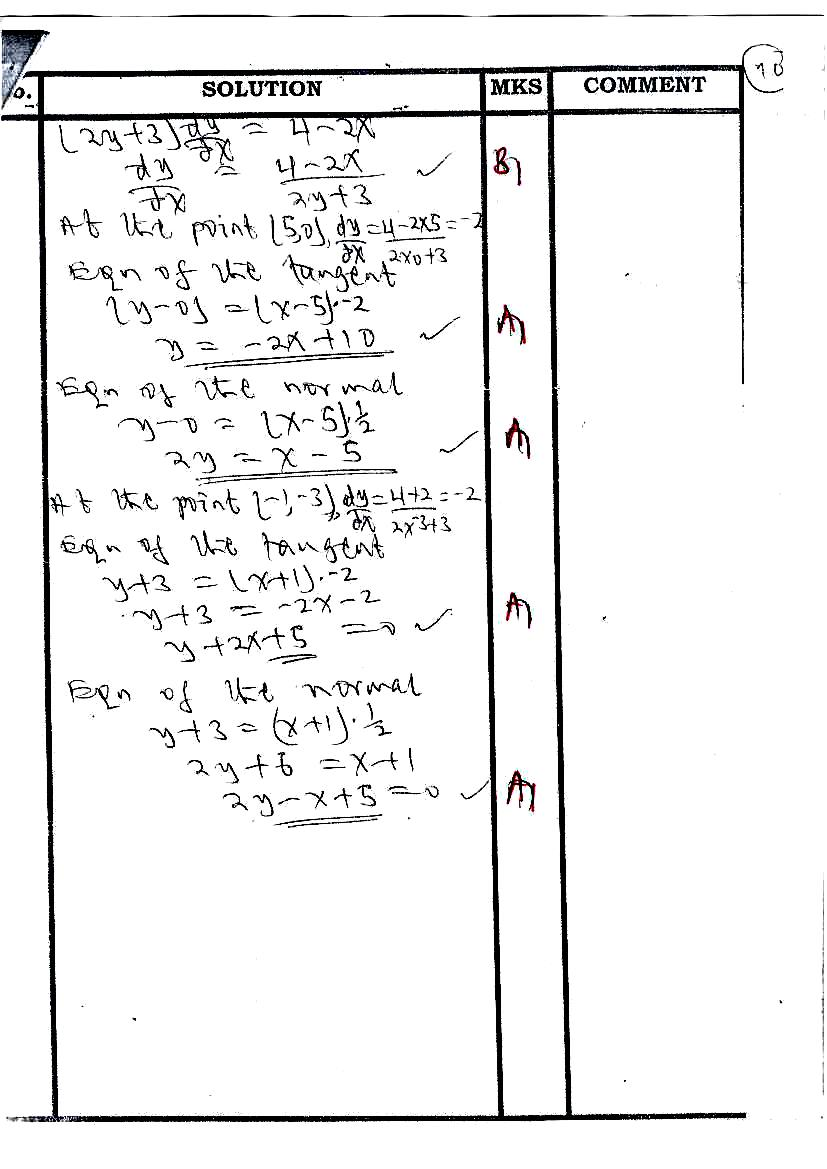 10
o. SOLUTION MKS COMMENT
(2y+3) dy/dx = 4-2x
dy/dx = 4-2x/2y+3 ✓ B1
At the point (5,0), dy/dx = 4-2x5/2x0+3 = -2
Eqn of the tangent
(y-0) = (x-5)·-2
y = -2x+10 ✓ A1
Eqn of the normal
y-0 = (x-5)·1/2
2y = x-5 ✓ A1
At the point (-1,-3), dy/dx = 4+2/2x-3+3 = -2
Eqn of the tangent
y+3 = (x+1)·-2
y+3 = -2x-2
y+2x+5 =0 ✓ A1
Eqn of the normal
y+3 = (x+1)·1/2
2y+6 = x+1
2y-x+5 =0 ✓ A1